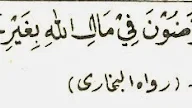 ضُوْنَ فِيْ مَالِ اللهِ بِغَيْرِ
(رواه البخارى)